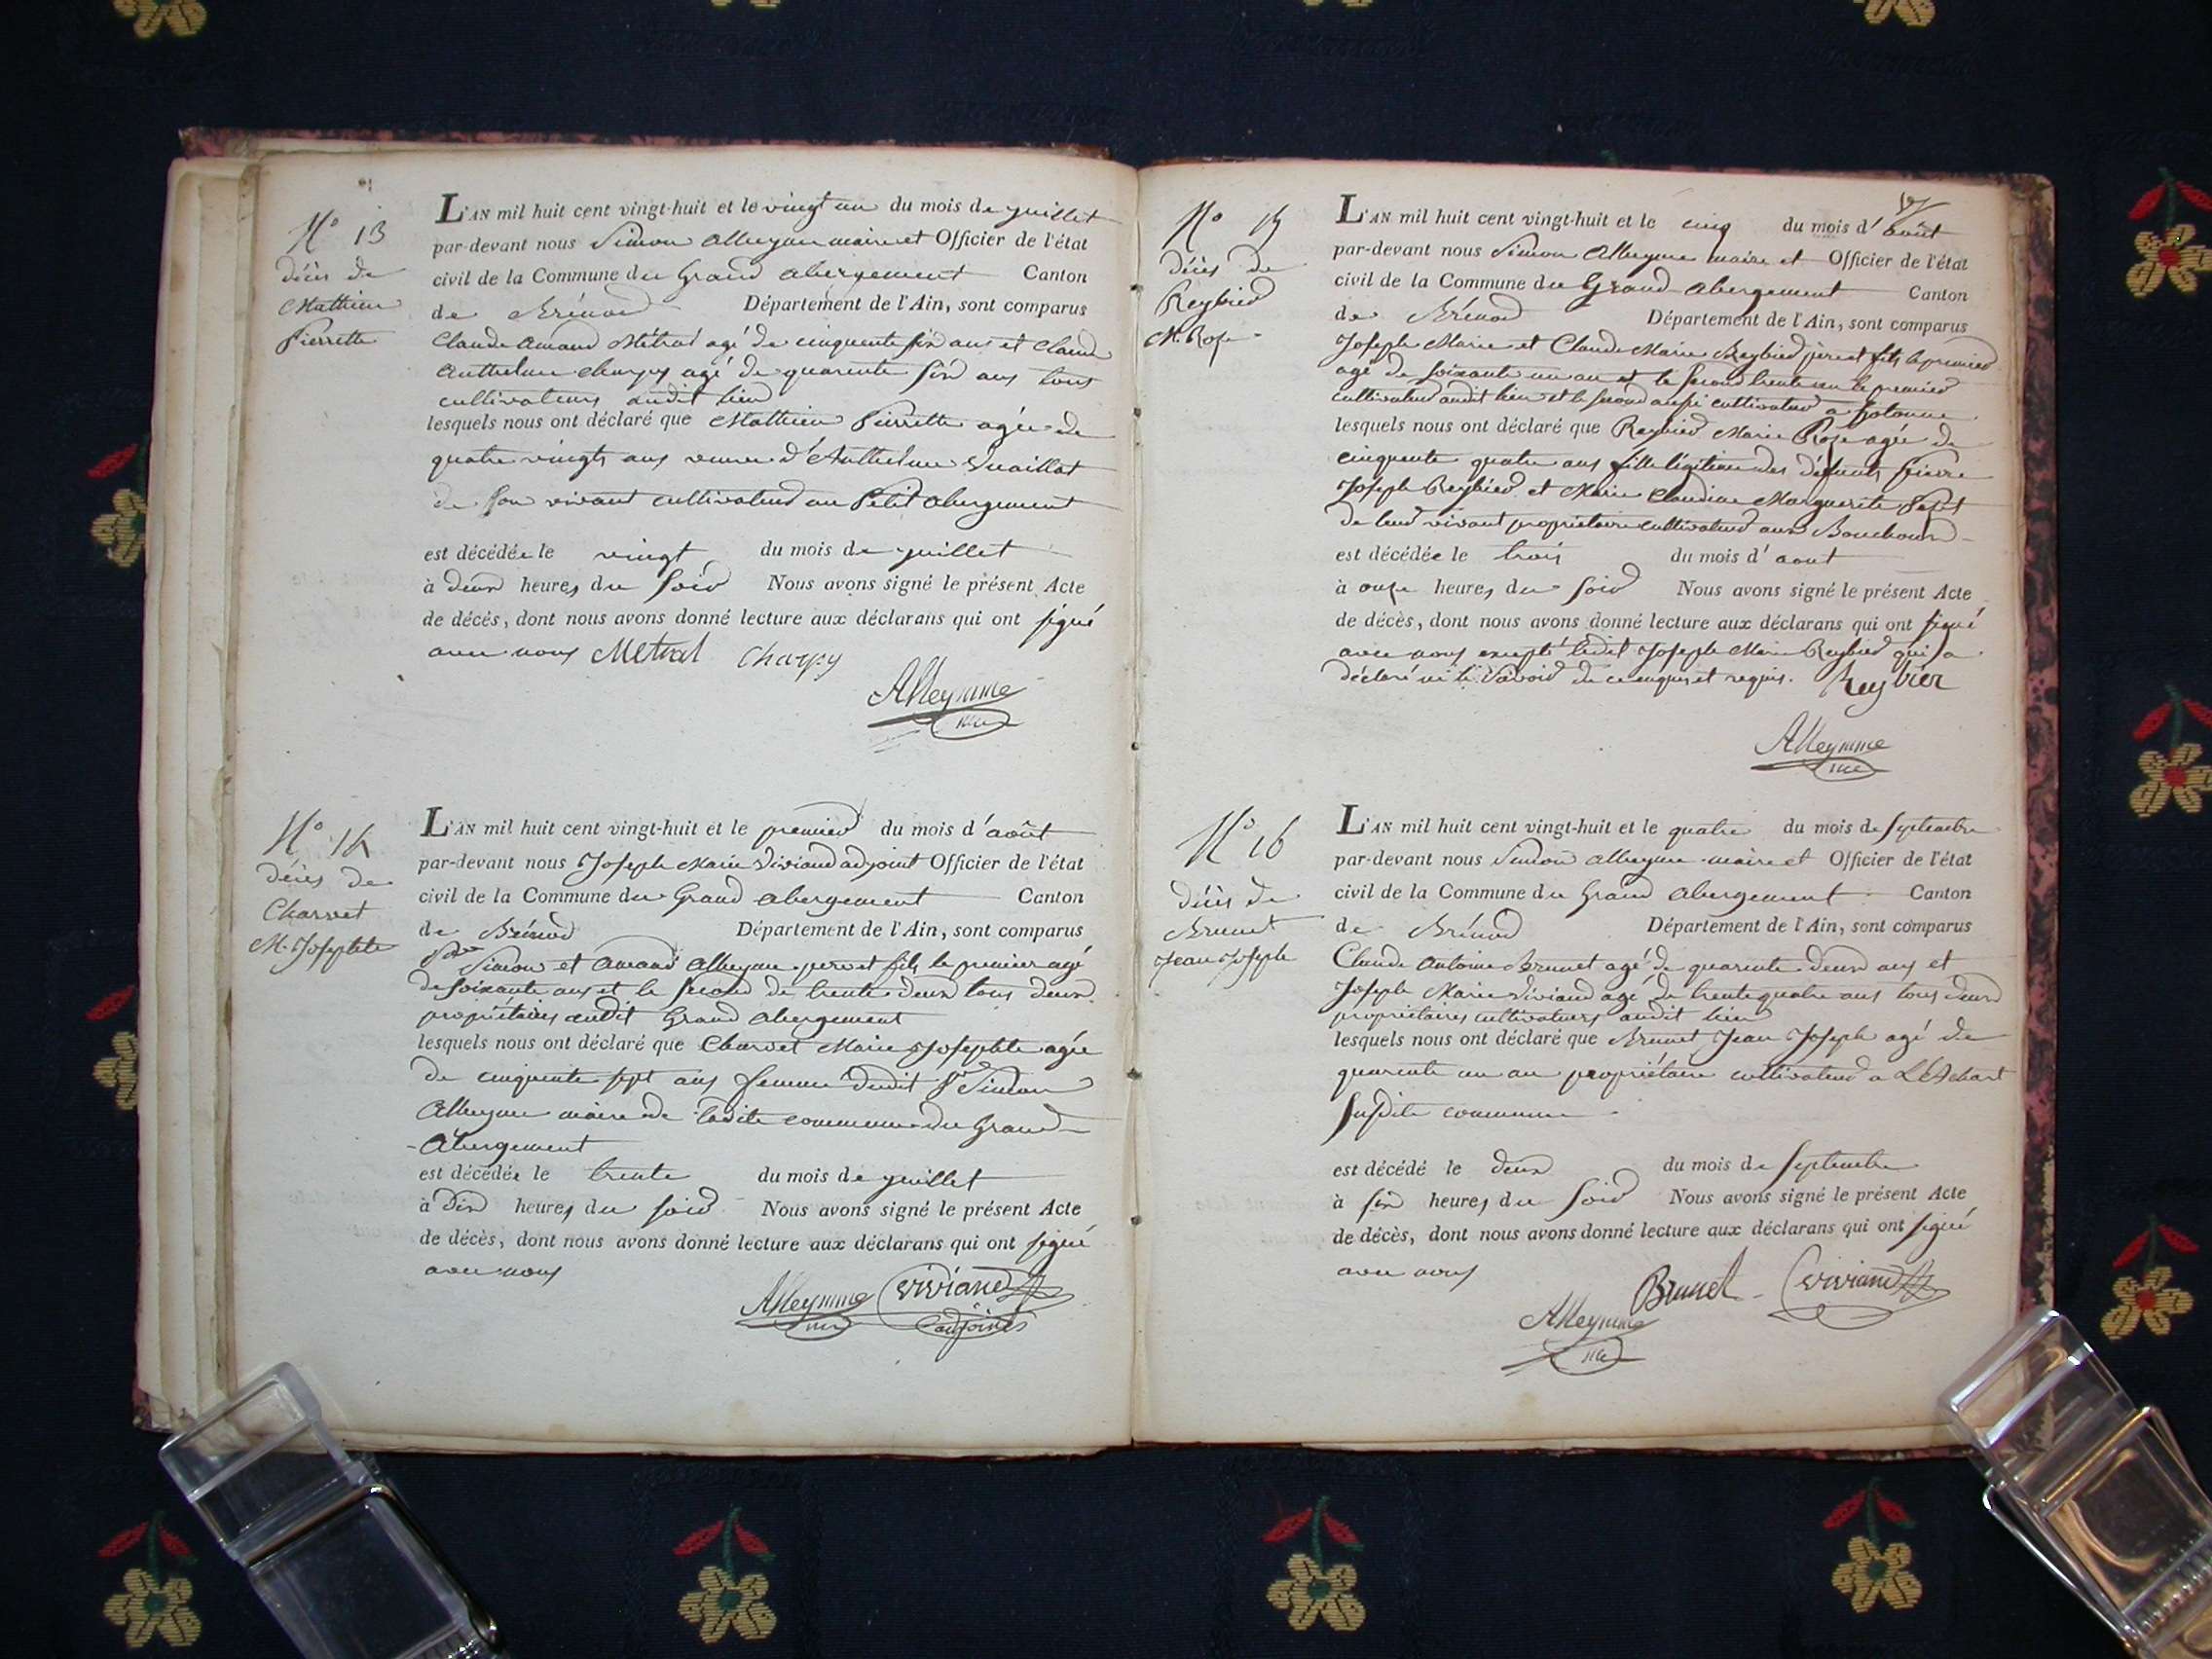 No 13
décès de
Mathieu
Pierrette
L'AN mil huit cent vingt-huit et le vingt un du mois de juillet
par-devant nous Simon Alleyme maire et Officier de l'état
civil de la Commune du Grand abergement Canton
de Brénod Département de l'Ain, sont comparus
Claude Amand Métral agé de cinquente six ans et Claude
Anthelme Charpy agé de quarente six ans tous
cultivateurs audit lieu
lesquels nous ont déclaré que Mathieu Pierrette agée de
quatre vingts ans veuve d'Anthelme Vuaillat
de son vivant cultivateur au Petit abergement
est décédée le vingt du mois de juillet
à deux heures du soir Nous avons signé le présent Acte
de décès, dont nous avons donné lecture aux déclarans qui ont signé
avec nous Metral Charpy
Alleymme
No 14
décès de
Charvet
M. Josephte
L'AN mil huit cent vingt-huit et le premier du mois d'août
par-devant nous Joseph Marie Viviand adjoint Officier de l'état
civil de la Commune du Grand abergement Canton
de Brénod Département de l'Ain, sont comparus
Sr Simon et Amand Alleyme père et fils le premier agé
de soixante ans et le second de trente deux tous deux
propriétaires audit Grand abergement
lesquels nous ont déclaré que Charvet Marie Josephte agée
de cinquente sept ans femme dudit Sr Simon
Alleyme maire de ladite commune du Grand
-Abergement
est décédée le trente du mois de juillet
à dix heures du soir Nous avons signé le présent Acte
de décès, dont nous avons donné lecture aux déclarans qui ont signé
avec nous
Alleymme Viviand
adjoint
No 15
décès de
Reybier
M. Rose
L'AN mil huit cent vingt-huit et le cinq du mois d'août
par-devant nous Simon Alleyme maire et Officier de l'état
civil de la Commune du Grand abergement Canton
de Brénod Département de l'Ain, sont comparus
Joseph Marie et Claude Marie Reybier père et fils le premier
agé de soixante un an et le second trente un le premier
cultivateur audit lieu et le second aussi cultivateur a
lesquels nous ont déclaré que Reybier Marie Rose agée de
cinquente quatre ans fille légitime des défunts Pierre
Joseph Reybier et Marie Claudine Marguerite
de leur vivant propriétaire cultivateur aux
est décédée le trois du mois d'aout
à onze heures du soir Nous avons signé le présent Acte
de décès, dont nous avons donné lecture aux déclarans qui ont signé
avec nous excepté ledit Joseph Marie Reybier qui a
déclaré ne le savoir de ce enquis et requis. Reybier
Alleymme
No 16
décès de
Brunet
Jean Joseph
L'AN mil huit cent vingt-huit et le quatre du mois de septembre
par-devant nous Simon Alleyme maire et Officier de l'état
civil de la Commune du Grand abergement Canton
de Brénod Département de l'Ain, sont comparus
Claude Antoine Brunet agé de quarente deux ans et
Joseph Marie Viviand agé de trente quatre ans tous deux
propriétaires cultivateurs audit lieu
lesquels nous ont déclaré que Brunet Jean Joseph agé de
quarente un an propriétaire cultivateur a
susdite commune
est décédé le deux du mois de septembre
à six heures du soir Nous avons signé le présent Acte
de décès, dont nous avons donné lecture aux déclarans qui ont signé
avec nous
Brunet Viviand
Alleymme